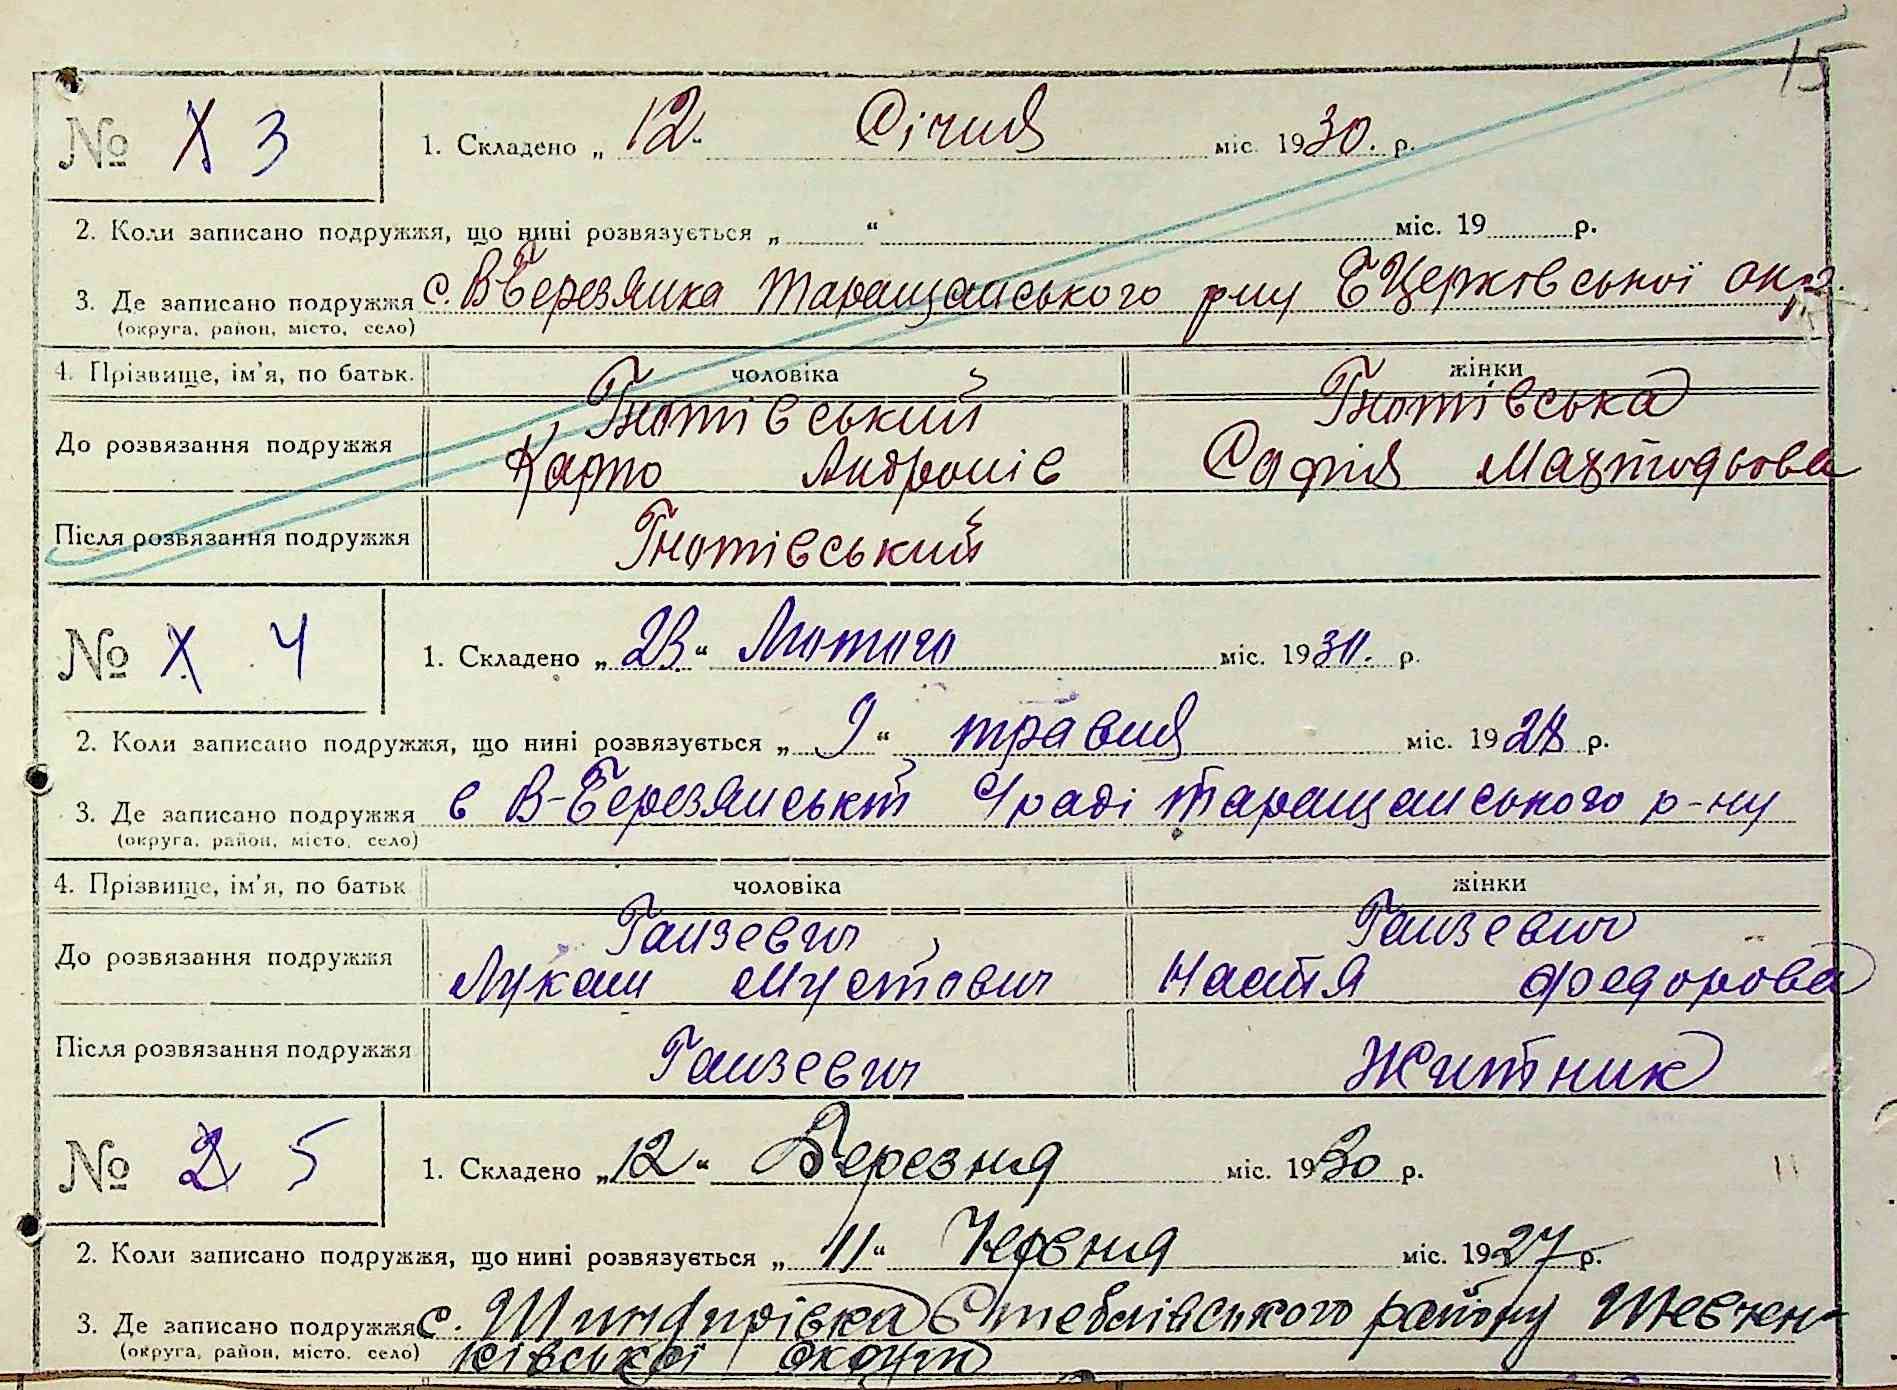 15
№ X 3
1. Складено „ 12 “ Січня міс. 1930. р.
2. Коли записано подружжя, що нині розвязується „ “ міс. 19 р.
3. Де записано подружжя с. В-Березянка Таращанського р-ну БЦерківської окр.
(округа, район, місто, село)
4. Прізвище, ім'я, по батьк. чоловіка жінки
До розвязання подружжя Гнотівський Гнотівська
Карпо Андронів Софія
Після розвязання подружжя Гнотівський
№ X 4
1. Складено „ 23 “ Лютого міс. 1930. р.
2. Коли записано подружжя, що нині розвязується „ 9 “ травня міс. 1928 р.
3. Де записано подружжя в В-Березянській С/раді Таращанського р-ну
(округа, район, місто, село)
4. Прізвище, ім'я, по батьк чоловіка жінки
До розвязання подружжя Ганзевич Ганзевич
Лукаш Настя Федорова
Після розвязання подружжя Ганзевич Житник
№ 2 5
1. Складено „ 12 “ Березня міс. 1930 р.
2. Коли записано подружжя, що нині розвязується „ 11 “ Червня міс. 1927 р.
3. Де записано подружжя с. Стеблівського району Шевчен-
(округа, район, місто, село) ківської округи